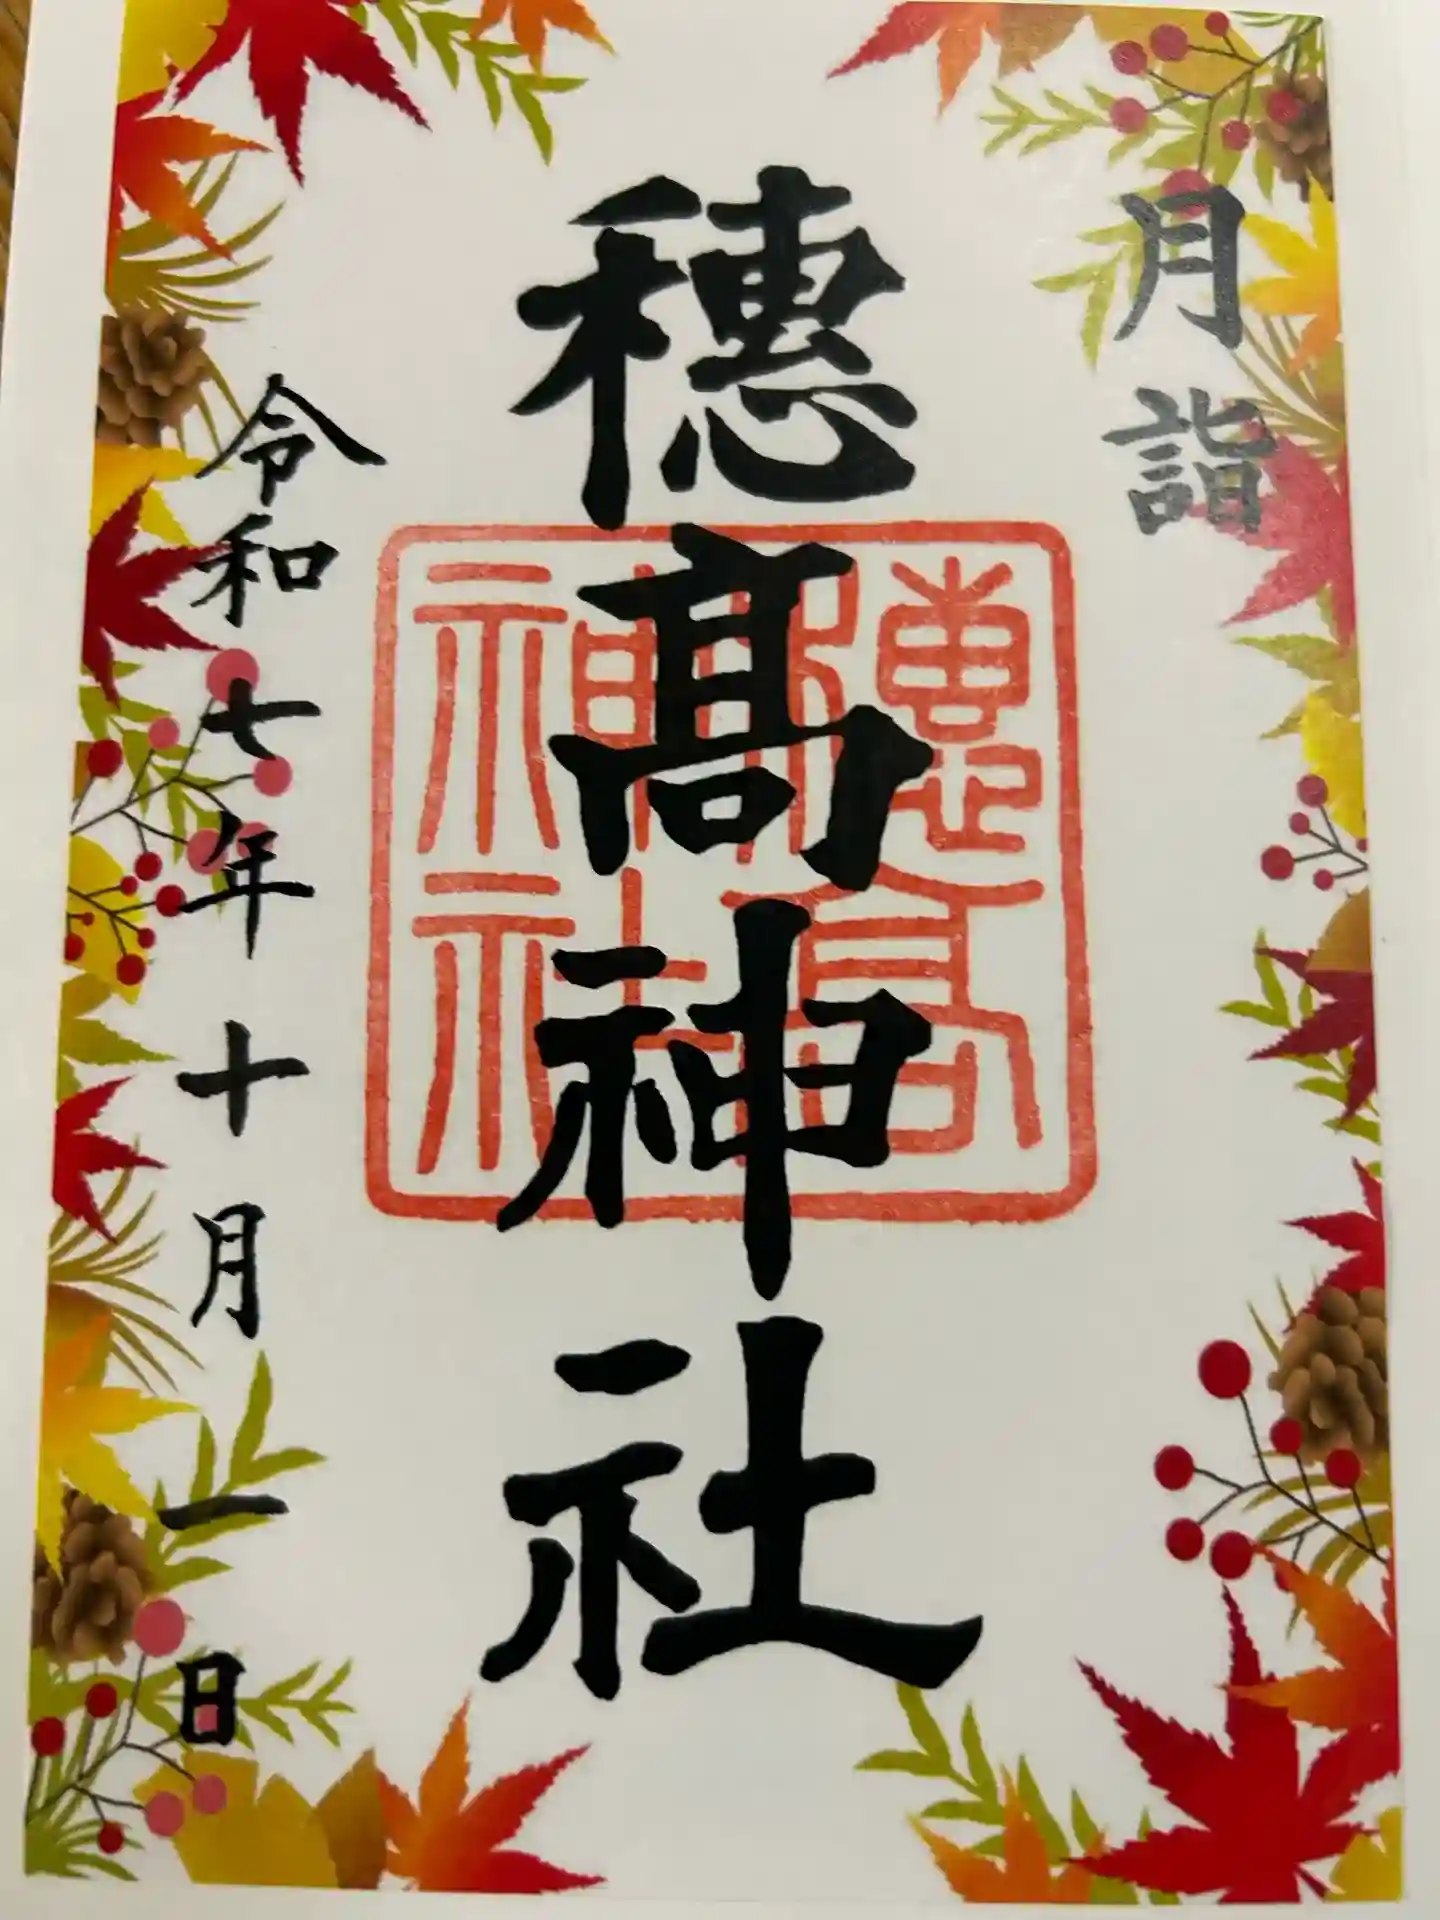 月詣
穗髙神社
穂高神社
令和七年十月一日